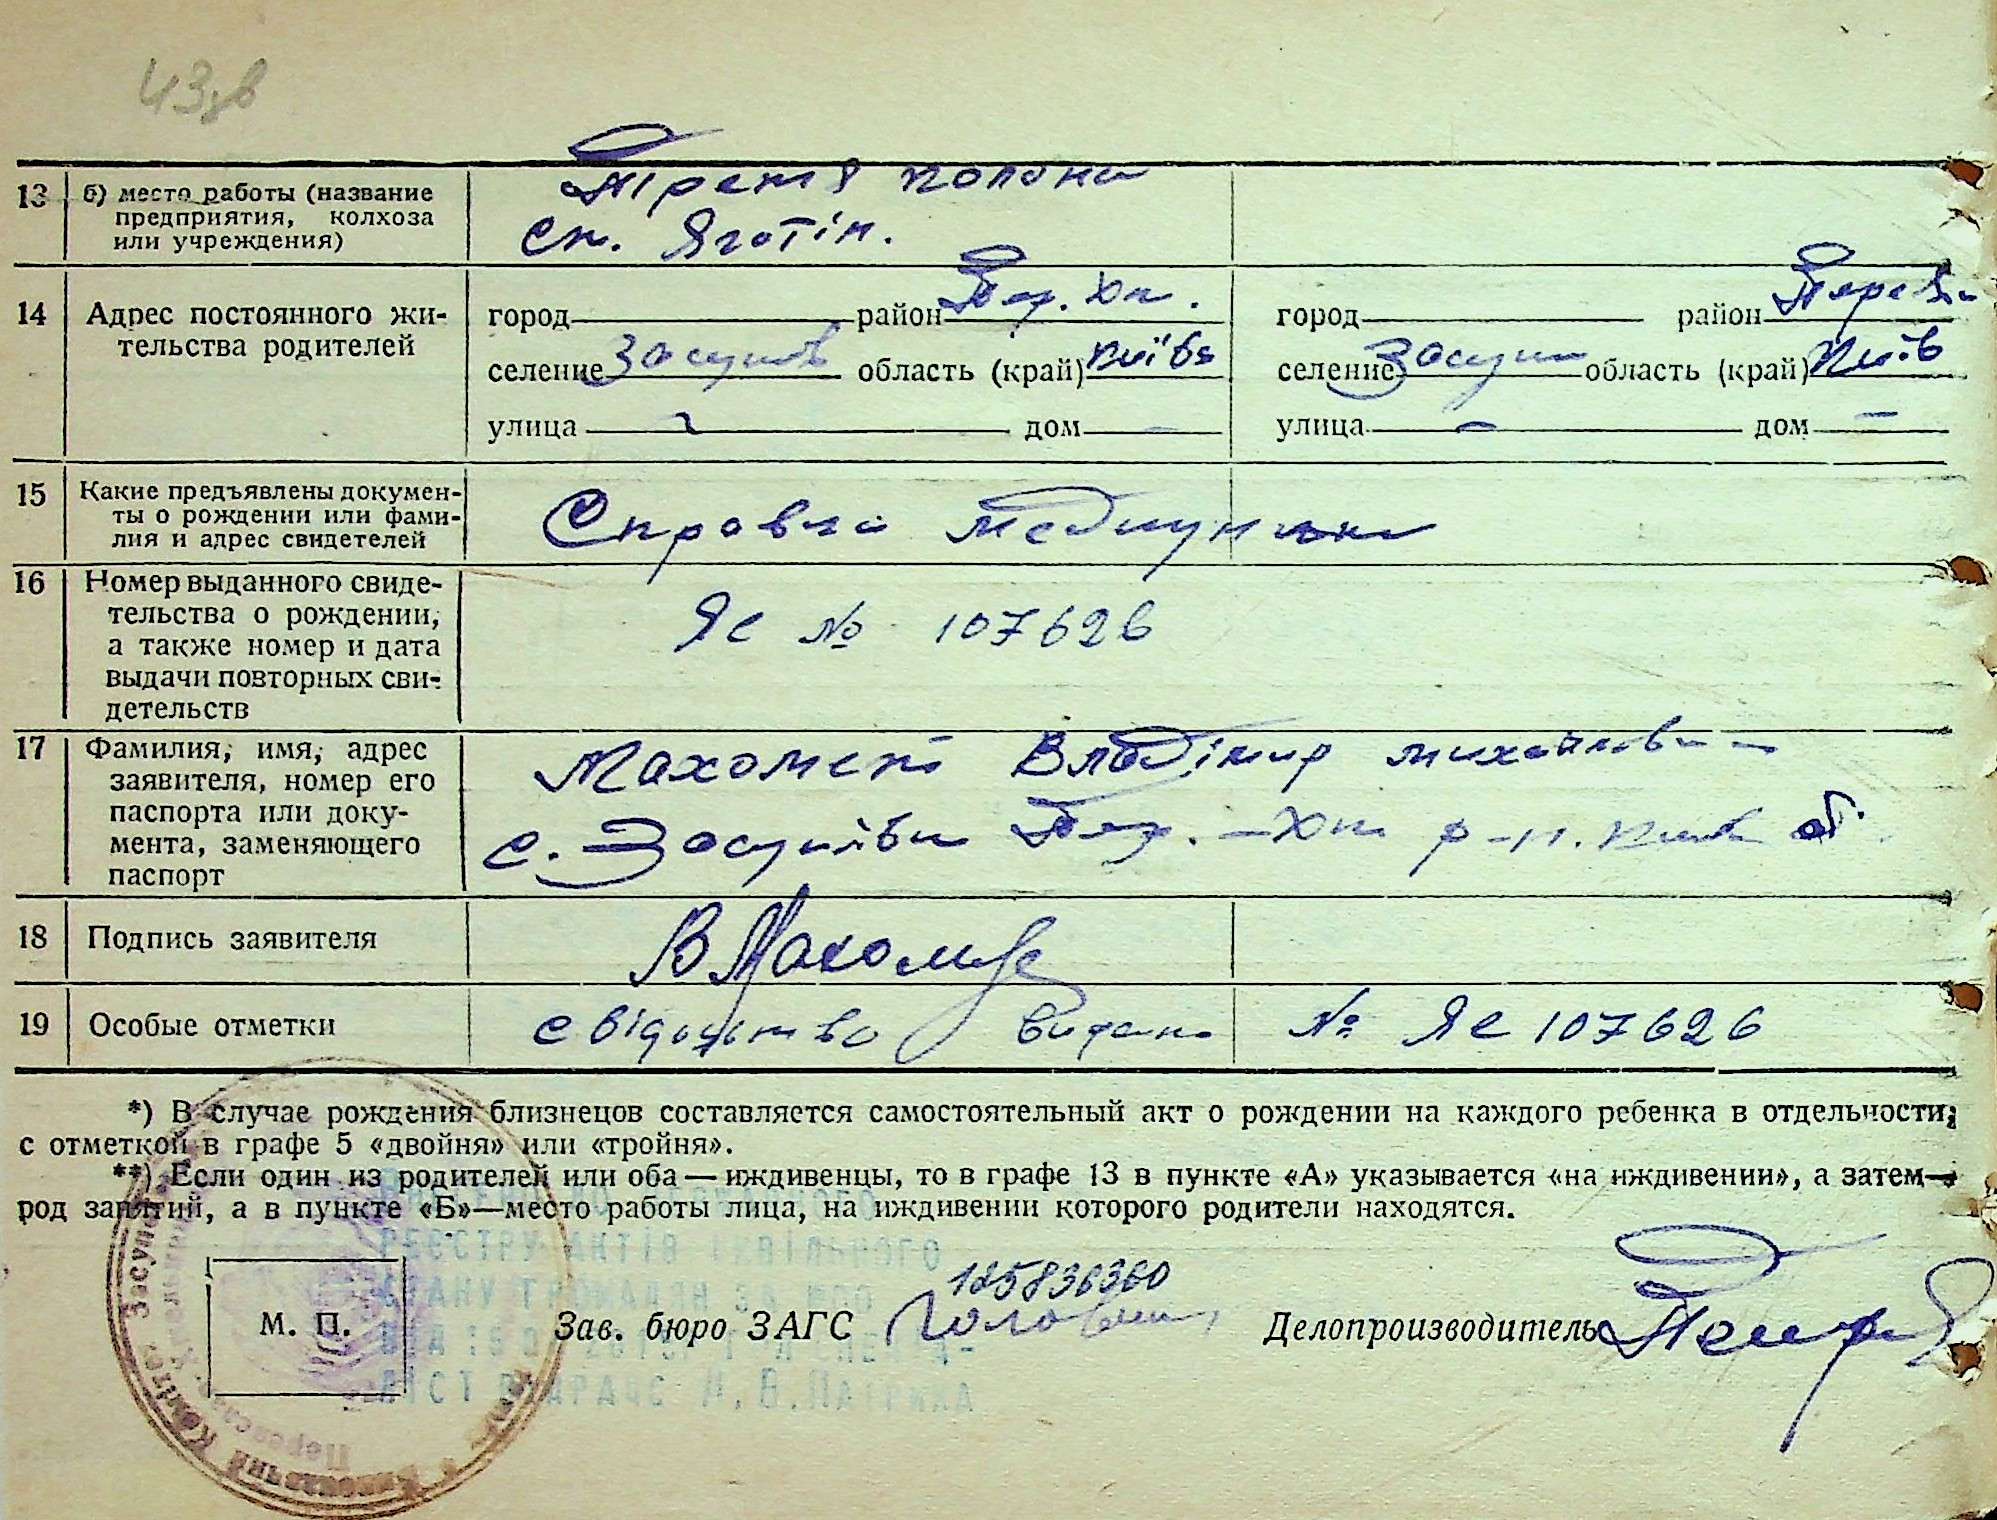 43
13 б) место работы (название предприятия, колхоза или учреждения)
Третя колона
Ст. Яготін.
14 Адрес постоянного жительства родителей
город район Пер. Хм.
селение Засупов область (край) Київс
улица – дом –
город район Перев.
селение Засуп область (край) Київ
улица – дом –
15 Какие предъявлены документы о рождении или фамилия и адрес свидетелей
Справка медпункта
16 Номер выданного свидетельства о рождении, а также номер и дата выдачи повторных свидетельств
ЯС № 107626
17 Фамилия, имя, адрес заявителя, номер его паспорта или документа, заменяющего паспорт
Махомет Владімир Михайлович
с. Засупівка Пер.-Хм р-н. Київ об.
18 Подпись заявителя
В Махомет
19 Особые отметки
Свідоцтво видано № ЯС 107626
*) В случае рождения близнецов составляется самостоятельный акт о рождении на каждого ребенка в отдельности,
с отметкой в графе 5 «двойня» или «тройня».
**) Если один из родителей или оба — иждивенцы, то в графе 13 в пункте «А» указывается «на иждивении», а затем—
род занятий, а в пункте «Б»—место работы лица, на иждивении которого родители находятся.
РЕЄСТРУ АКТІВ ЦИВІЛЬНОГО
СТАНУ ГРОМАДЯН ЗА №
125836360
М. П.
Зав. бюро ЗАГС
Делопроизводитель